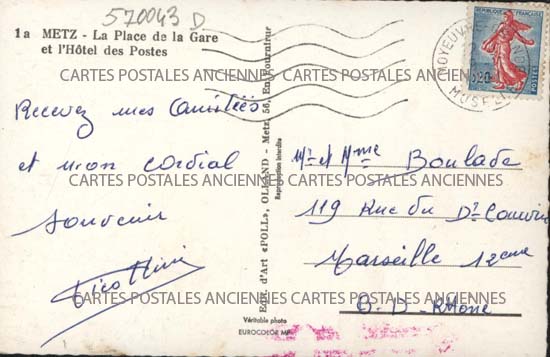 570043 D
1a METZ - La Place de la Gare
et l'Hôtel des Postes
Recevez mes Amitiés
et mon cordial
souvenir
Edit. d'Art «POLL», OLLAND - Metz, 56, En Fournirue
Reproduction interdite
Véritable photo
EUROCOLOR MP
REPUBLIQUE FRANÇAISE
0,20
POSTES
MOYEUVRE
MOSELLE
Mr et Mme Boulade
119 Rue du Dr
Marseille 12eme
B-D-Rhône
CARTES POSTALES ANCIENNES CARTES POSTALES ANCIENNES
CARTES POSTALES ANCIENNES CARTES POSTALES ANCIENNES
CARTES POSTALES ANCIENNES CARTES POSTALES ANCIENNES